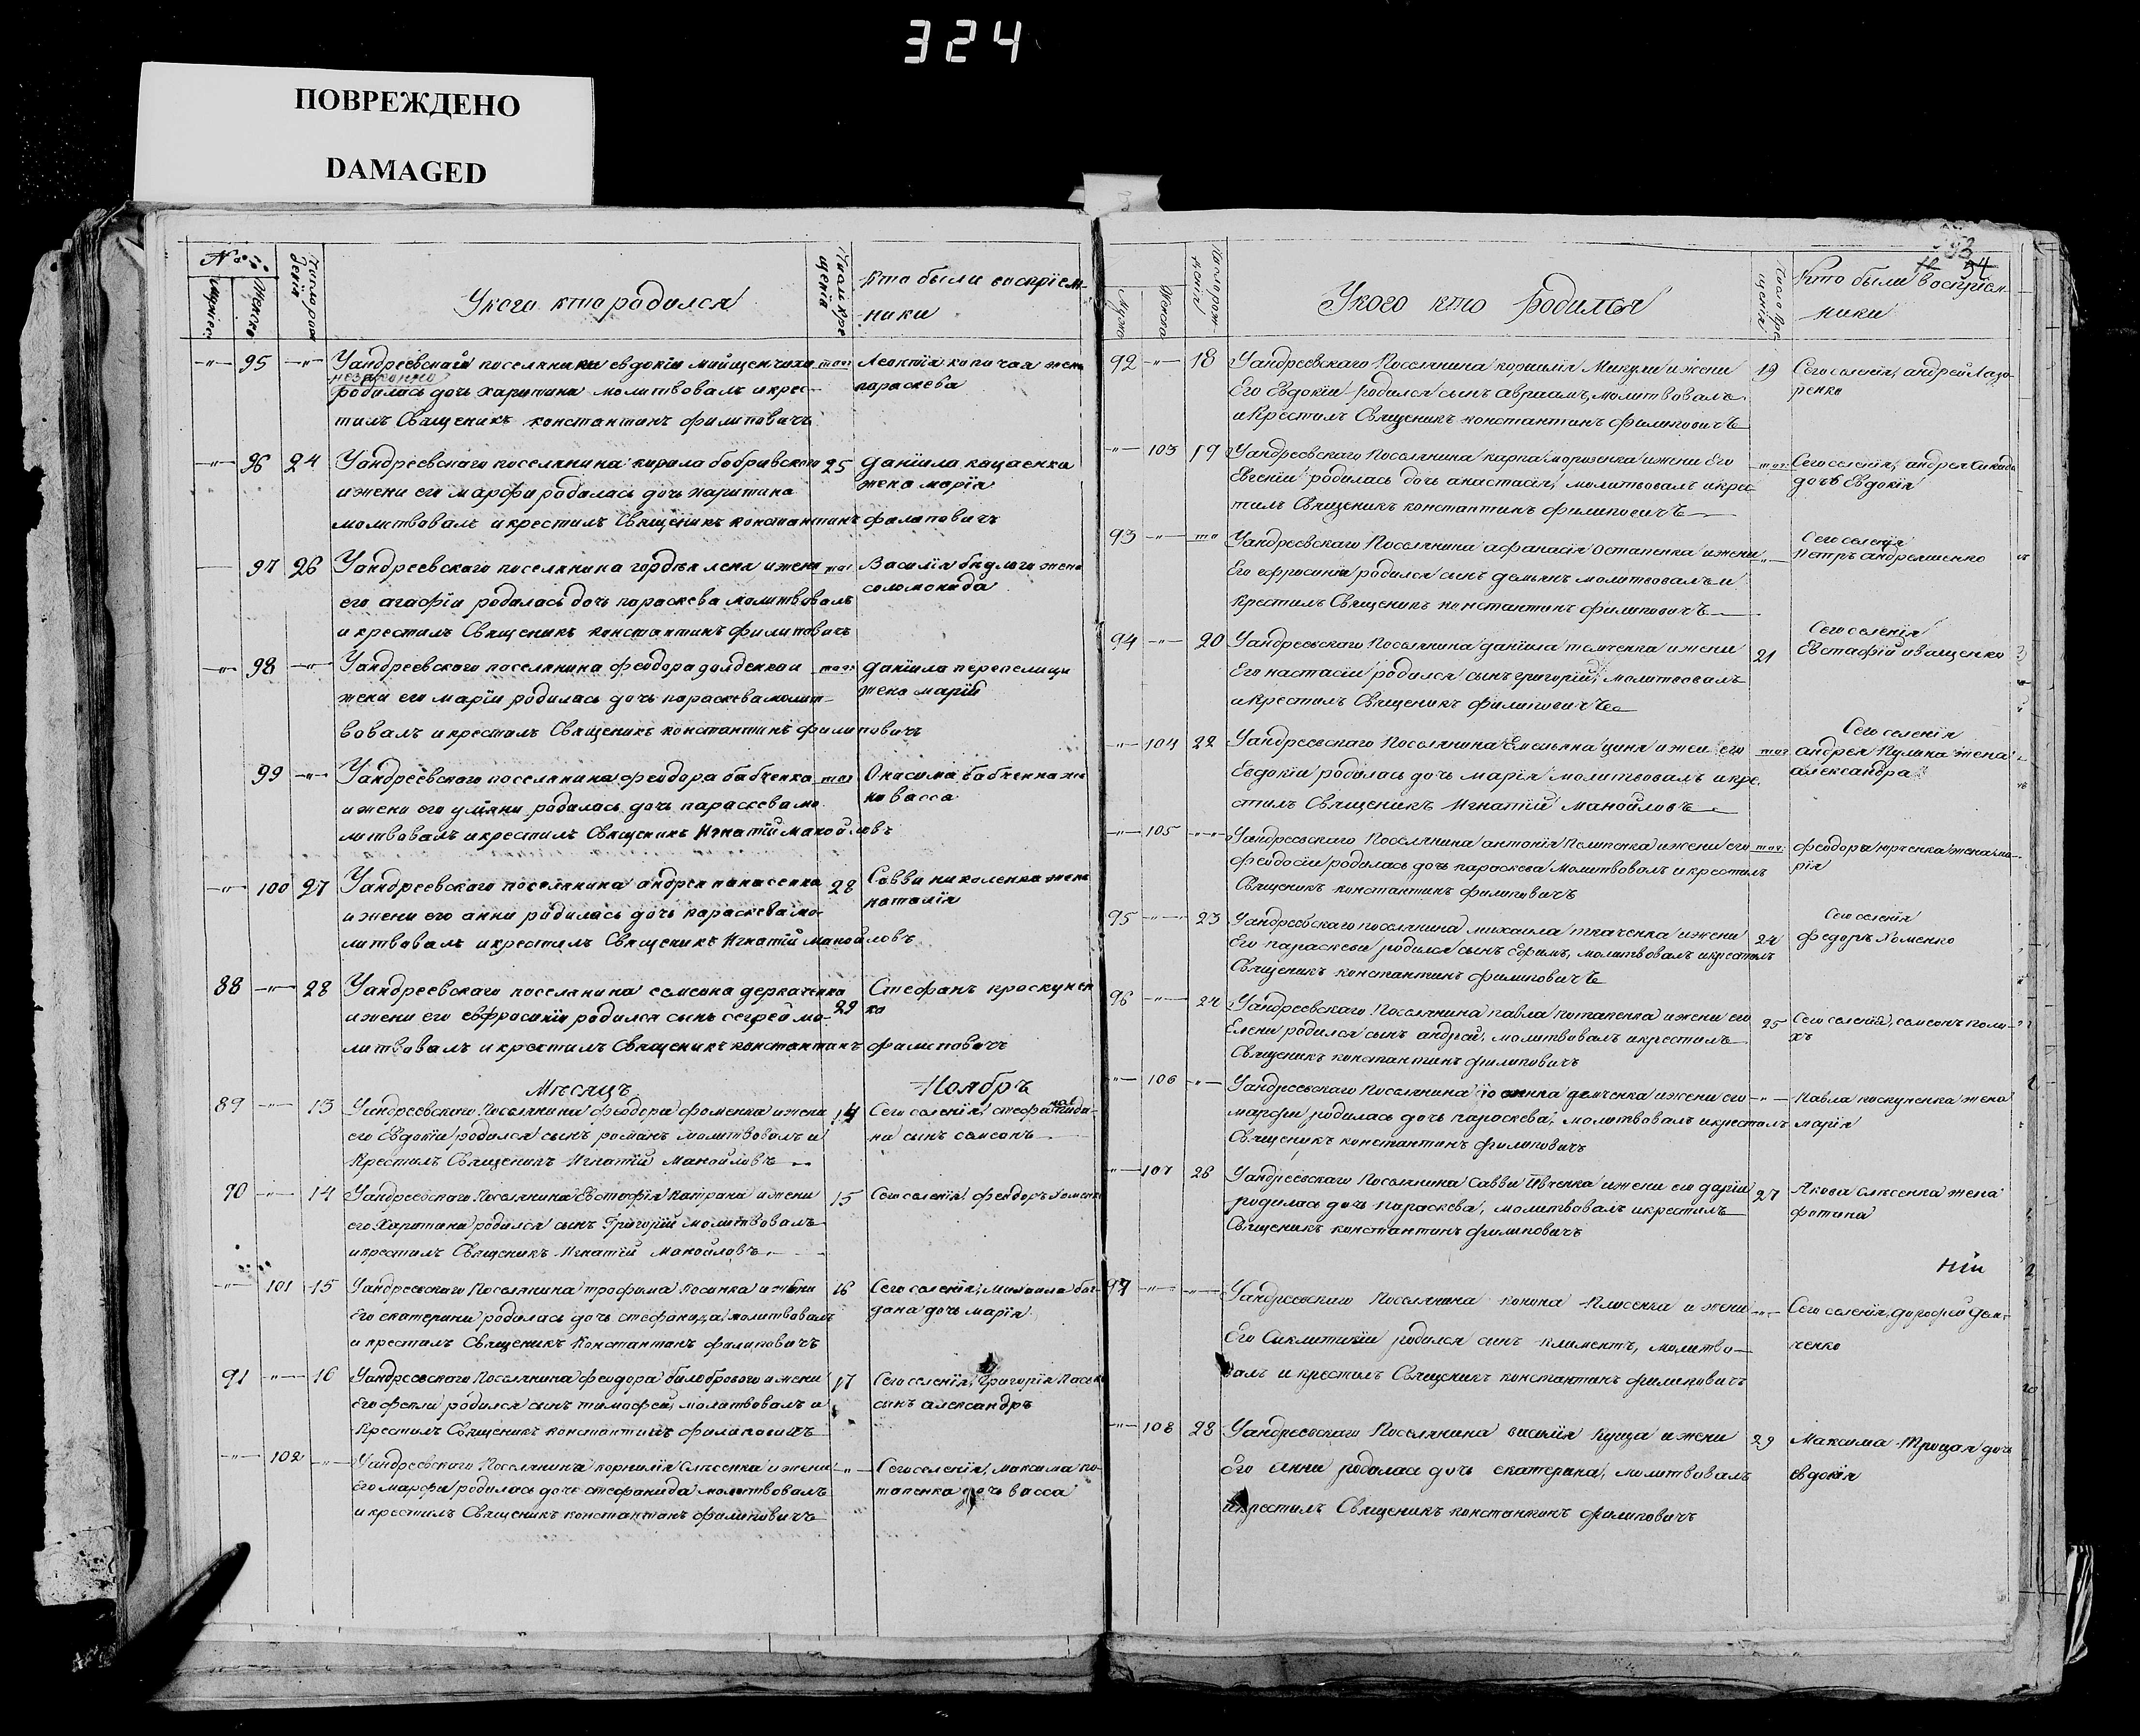 324
ПОВРЕЖДЕНО
DAMAGED
№
Мужес. Женско Число рож дения У кого кто родился Число кре щения Кто были восприем-
ники
-"- 95 -"- У андреевской поселянки евдокии
незаконно
родилась дочь харитина молитвовалъ и крес-
тилъ Священикъ константинъ филиповичъ
тог Леонтія жена
параскева
-"- 96 24 У андреевского поселянина кирила бобривского
и жени его марфи родилась дочь харитина
молитвовалъ и крестилъ Священикъ константинъ филиповичъ
25 даніила кацаенка
жена марія
97 26 У андреевского поселянина и жени
его агафіи родилась дочь параскева молитвовалъ
и крестилъ Священикъ константинъ филиповичъ
тог Василія бидлого жена
соломонида
-"- 98 -"- У андреевского поселянина феодора и
жени его маріи родилась дочь параскева молит-
вовалъ и крестилъ Священикъ константинъ филиповичъ
тог даніила перепелици
жена марія
99 -"- У андреевского поселянина феодора бабченка
и жени его уліяни родилась дочь параскева мо
литвовалъ и крестилъ Священикъ Игнатій манойловъ
тог Онисима бабченка же
на васса
-"- 100 27 У андреевского поселянина андрея панасенка
и жени его анни родилась дочь параскева мо-
литвовалъ и крестилъ Священикъ Игнатій манойловъ
28 Савви николенка жена
наталія
88 -"- 28 У андреевского поселянина семена деркаченка
и жени его евфросиніи родился сынъ сергей мо-
литвовалъ и крестилъ Священикъ константинъ филиповичъ
29 Стефанъ проскурен
ко
Мѣсяцъ Ноябрь
89 -"- 13 У андреевского Поселянина феодора фоменка и жени
его Евдокіи родился сынъ романъ молитвовалъ и
Крестилъ Священикъ Игнатій Манойловъ
14 Сего селенія
на сынъ самсонъ
90 -"- 14 У андреевского Поселянина Евстафія Катрана и жени
его Харитини родился сынъ Григорій молитвовалъ
и крестилъ Священикъ Игнатій Манойловъ
15 Сего селенія феодоръ Хоменко
-"- 101 15 У андреевского Поселянина трофима Косинка и жени
Его екатерини родилась дочь стефанида молитвовалъ
и крестилъ Священикъ Константинъ филиповичъ
16 Сего селенія Михаила бог
дана дочь марія
91 -"- 16 У андреевского Поселянина феодора билоброваго и жени
Его фекли родился сынъ тимофей, молитвовалъ и
Крестилъ Священикъ константинъ филиповичъ
17 Сего селенія Григорія Пасе
сынъ александръ
-"- 102 -"- У андреевского Поселянина корнилія Слѣсенка и жени
Его марфи родилась дочь стефанида молитвовалъ
и крестилъ Священикъ константинъ филиповичъ
-"- Сего селенія, максима по-
тапенка дочь васса
93
94
Мужес Женско Число рож- денія У кого кто родился Число кре щенія Кто были восприем-
ники
92 -"- 18 У андреевскаго Поселянина корнилія Микули и жени
Его Евдокіи родился сынъ авраамъ, молитвовалъ
и Крестилъ Священикъ константинъ филиповичъ
19 Сего селенія, андрей Лазо-
ренко
-"- 103 19 У андреевскаго Поселянина карпа морозенка и жени Его
Евгеніи родилась дочь анастасія, молитвовалъ и крес
тилъ Священикъ константинъ филиповичъ
тог: Сего селенія, андрея
дочь Евдокія
93 -"- то У андреевскаго Поселянина афанасія Остапенка и жени
Его ефросиніи родился сынъ демьянъ молитвовалъ и
Крестилъ Священикъ константинъ филиповичъ
-"- Сего селенія
Петръ андреяшенко
94 -"- 20 У андреевскаго Поселянина даніила темченка и жени
Его настасіи родился сынъ григорій, молитвовалъ
и крестилъ Священикъ филиповичъ
21 Сего селенія
Евстафій иващенко
-"- 104 22 У андреевскаго Поселянина Емельяна и жени его
Евдокіи родилась дочь марія молитвовалъ и кре
стилъ Священикъ Игнатій Манойловъ
тог Сего селенія
андрея Кулика жена
александра
-"- 105 -"- У андреевскаго Поселянина антонія Пелипенка и жени его
феодосіи родилась дочь параскева молитвовалъ и крестилъ
Священикъ константинъ филиповичъ
тог: феодора юрченка жена ма-
рія
95 -"- 23 У андреевскаго поселянина михаила ткаченка и жени
Его параскеви родился сынъ Ефимъ, молитвовалъ и крестилъ
Священикъ константинъ филиповичъ
24 Сего селенія
федоръ Хоменко
96 -"- 24 У андреевскаго Поселянина павла потапенка и жени его
Елени родился сынъ андрей, молитвовалъ и крестилъ
Священикъ константинъ филиповичъ
25 Сего селенія, семенъ поли-
хъ
-"- 106 -"- У андреевскаго Поселянина демченка и жени его
марфи родилась дочь параскева, молитвовалъ и крестилъ
Священикъ константинъ филиповичъ
-"- Павла жена
марія
-"- 107 26 У андреевскаго Поселянина Савви Ивченка и жени его даріи
родилась дочь параскева, молитвовалъ и крестилъ
Священикъ константинъ филиповичъ
27 Якова слѣсенка жена
фотина
97 -"- -"- У андреевскаго Поселянина конона и жени
Его Сиклитикіи родился сынъ климентъ, молитво-
валъ и крестилъ Священикъ константинъ филиповичъ
-"- Сего селенія, дорофей дем-
ченко
-"- 108 28 У андреевскаго Поселянина василія Куща и жени
Его Анни родилась дочь екатерина, молитвовалъ
и крестилъ Священикъ константинъ филиповичъ
29 Максима Троцая дочь
евдокія